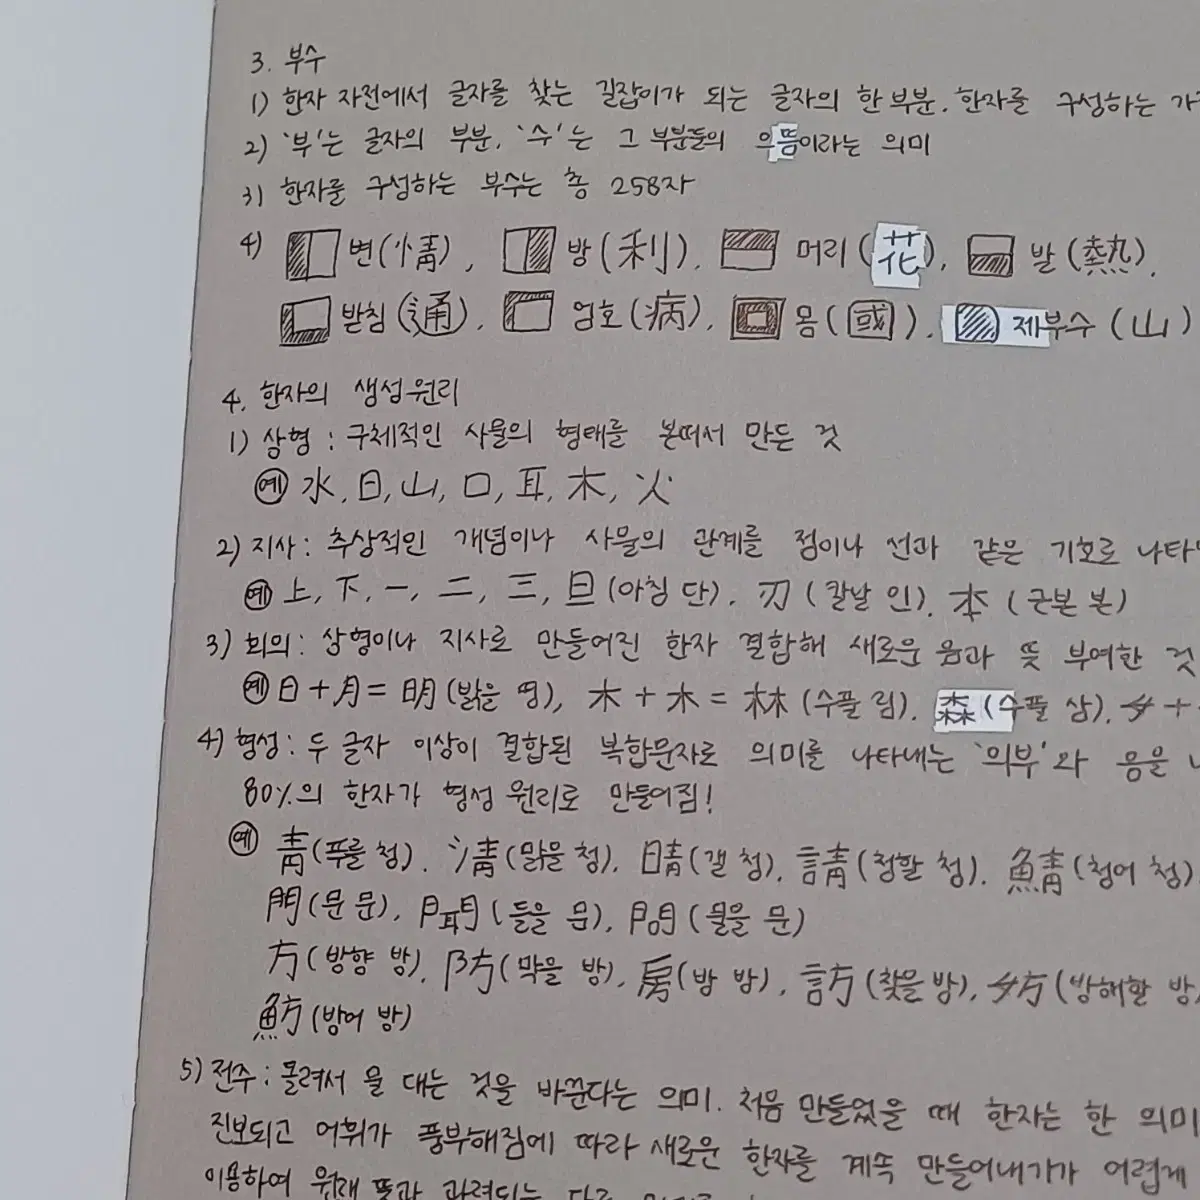 3. 부수
1) 한자 자전에서 글자를 찾는 길잡이가 되는 글자의 한 부분. 한자를 구성하는
2) '부'는 글자의 부분, '수'는 그 부분들의 으뜸이라는 의미
3) 한자를 구성하는 부수는 총 258자
4) 변(情), 방(利), 머리(花), 발(熱),
받침(通), 엄호(病), 몸(國), 제부수(山)
4. 한자의 생성원리
1) 상형: 구체적인 사물의 형태를 본떠서 만든 것
예 水, 日, 山, 口, 耳, 木, 火
2) 지사: 추상적인 개념이나 사물의 관계를 점이나 선과 같은 기호로
예 上, 下, 一, 二, 三, 旦(아침 단), 刃(칼날 인), 本(근본 본)
3) 회의: 상형이나 지사로 만들어진 한자 결합해 새로운 음과 뜻 부여한 것
예 日+月=明(밝을 명), 木+木=林(수풀 림), 森(수풀 삼), 夕+
4) 형성: 두 글자 이상이 결합된 복합문자로 의미를 나타내는 '의부'와 음을
80%의 한자가 형성 원리로 만들어짐!
예 靑(푸를 청), 淸(맑을 청), 晴(갤 청), 請(청할 청), 鯖(청어 청),
門(문 문), 聞(들을 문), 問(물을 문)
方(방향 방), 防(막을 방), 房(방 방), 訪(찾을 방), 妨(방해할 방),
魴(방어 방)
5) 전주: 돌려서 물 대는 것을 바꾼다는 의미. 처음 만들었을 때 한자는 한 의미
진보되고 어휘가 풍부해짐에 따라 새로운 한자를 계속 만들어내기가 어렵게
이용하여 원래 뜻과 관련되는 다른